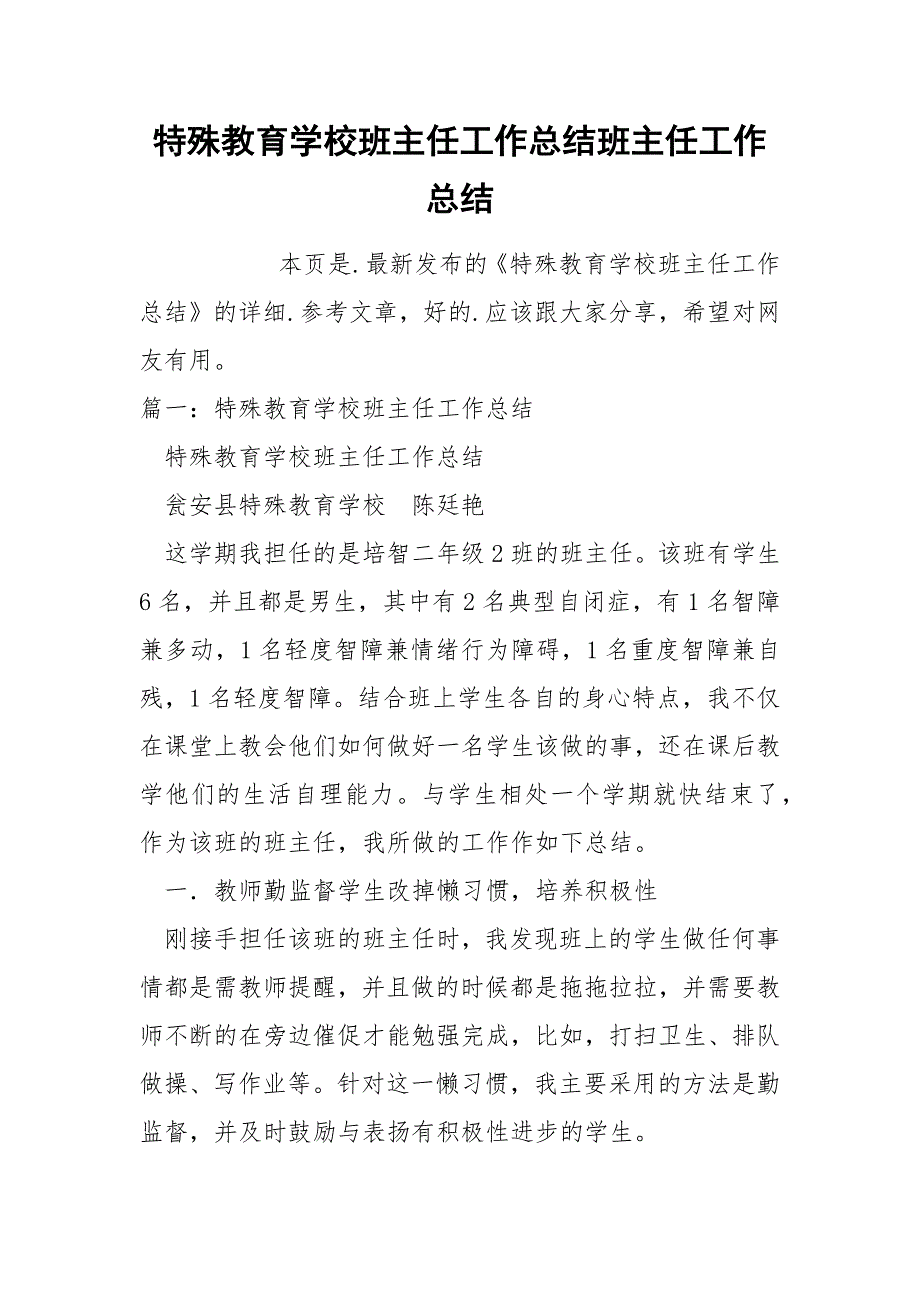 特殊教育学校班主任工作总结班主任工作
总结
本页是.最新发布的《特殊教育学校班主任工作
总结》的详细.参考文章，好的.应该跟大家分享，希望对网
友有用。
篇一：特殊教育学校班主任工作总结
特殊教育学校班主任工作总结
瓮安县特殊教育学校　陈廷艳
这学期我担任的是培智二年级2班的班主任。该班有学生
6名，并且都是男生，其中有2名典型自闭症，有1名智障
兼多动，1名轻度智障兼情绪行为障碍，1名重度智障兼自
残，1名轻度智障。结合班上学生各自的身心特点，我不仅
在课堂上教会他们如何做好一名学生该做的事，还在课后教
学他们的生活自理能力。与学生相处一个学期就快结束了，
作为该班的班主任，我所做的工作作如下总结。
一．教师勤监督学生改掉懒习惯，培养积极性
刚接手担任该班的班主任时，我发现班上的学生做任何事
情都是需教师提醒，并且做的时候都是拖拖拉拉，并需要教
师不断的在旁边催促才能勉强完成，比如，打扫卫生、排队
做操、写作业等。针对这一懒习惯，我主要采用的方法是勤
监督，并及时鼓励与表扬有积极性进步的学生。